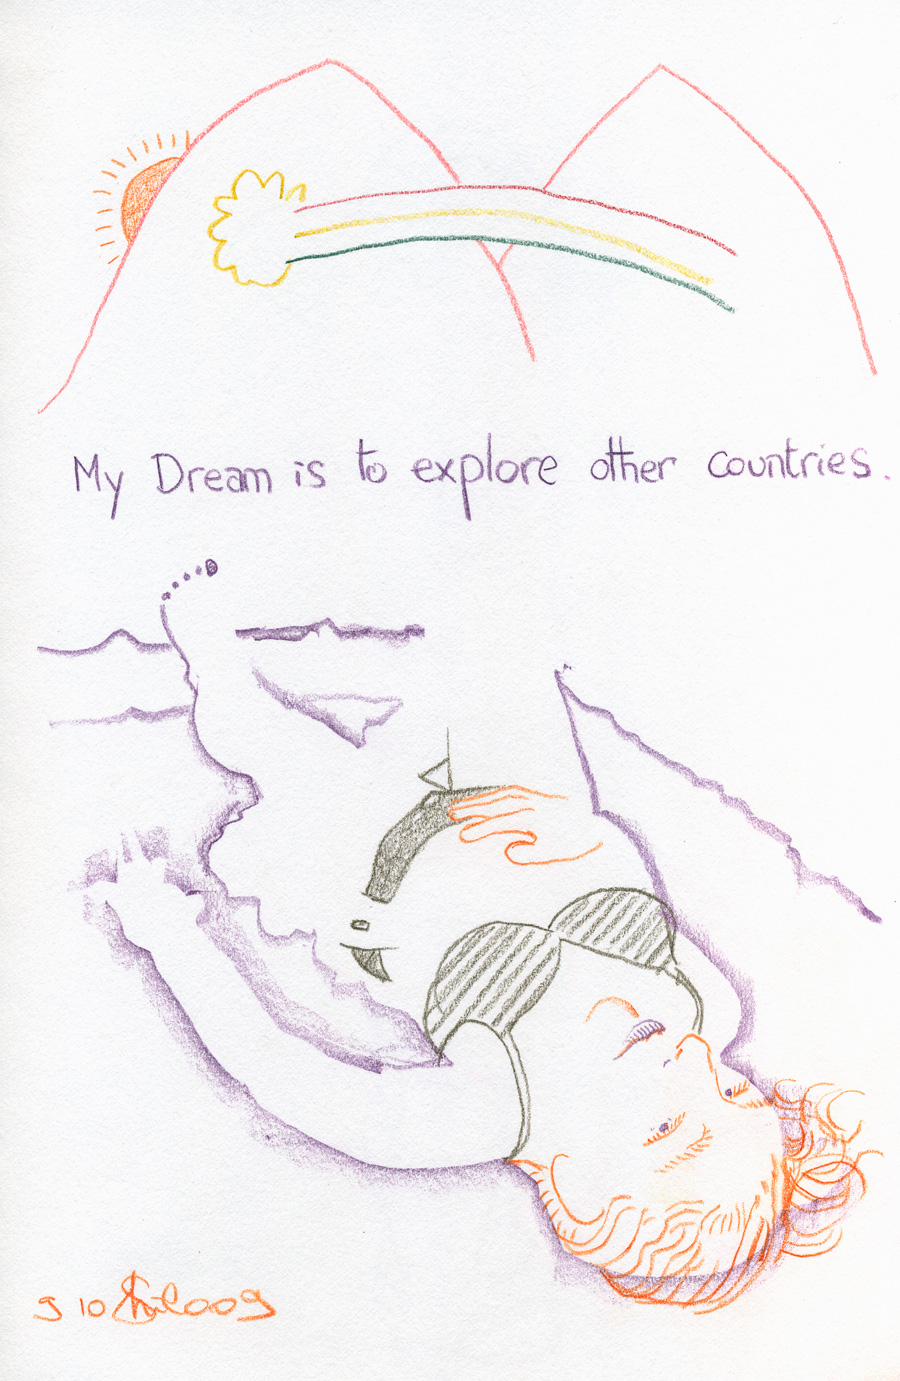 My Dream is to explore other countries.
9 10 2009